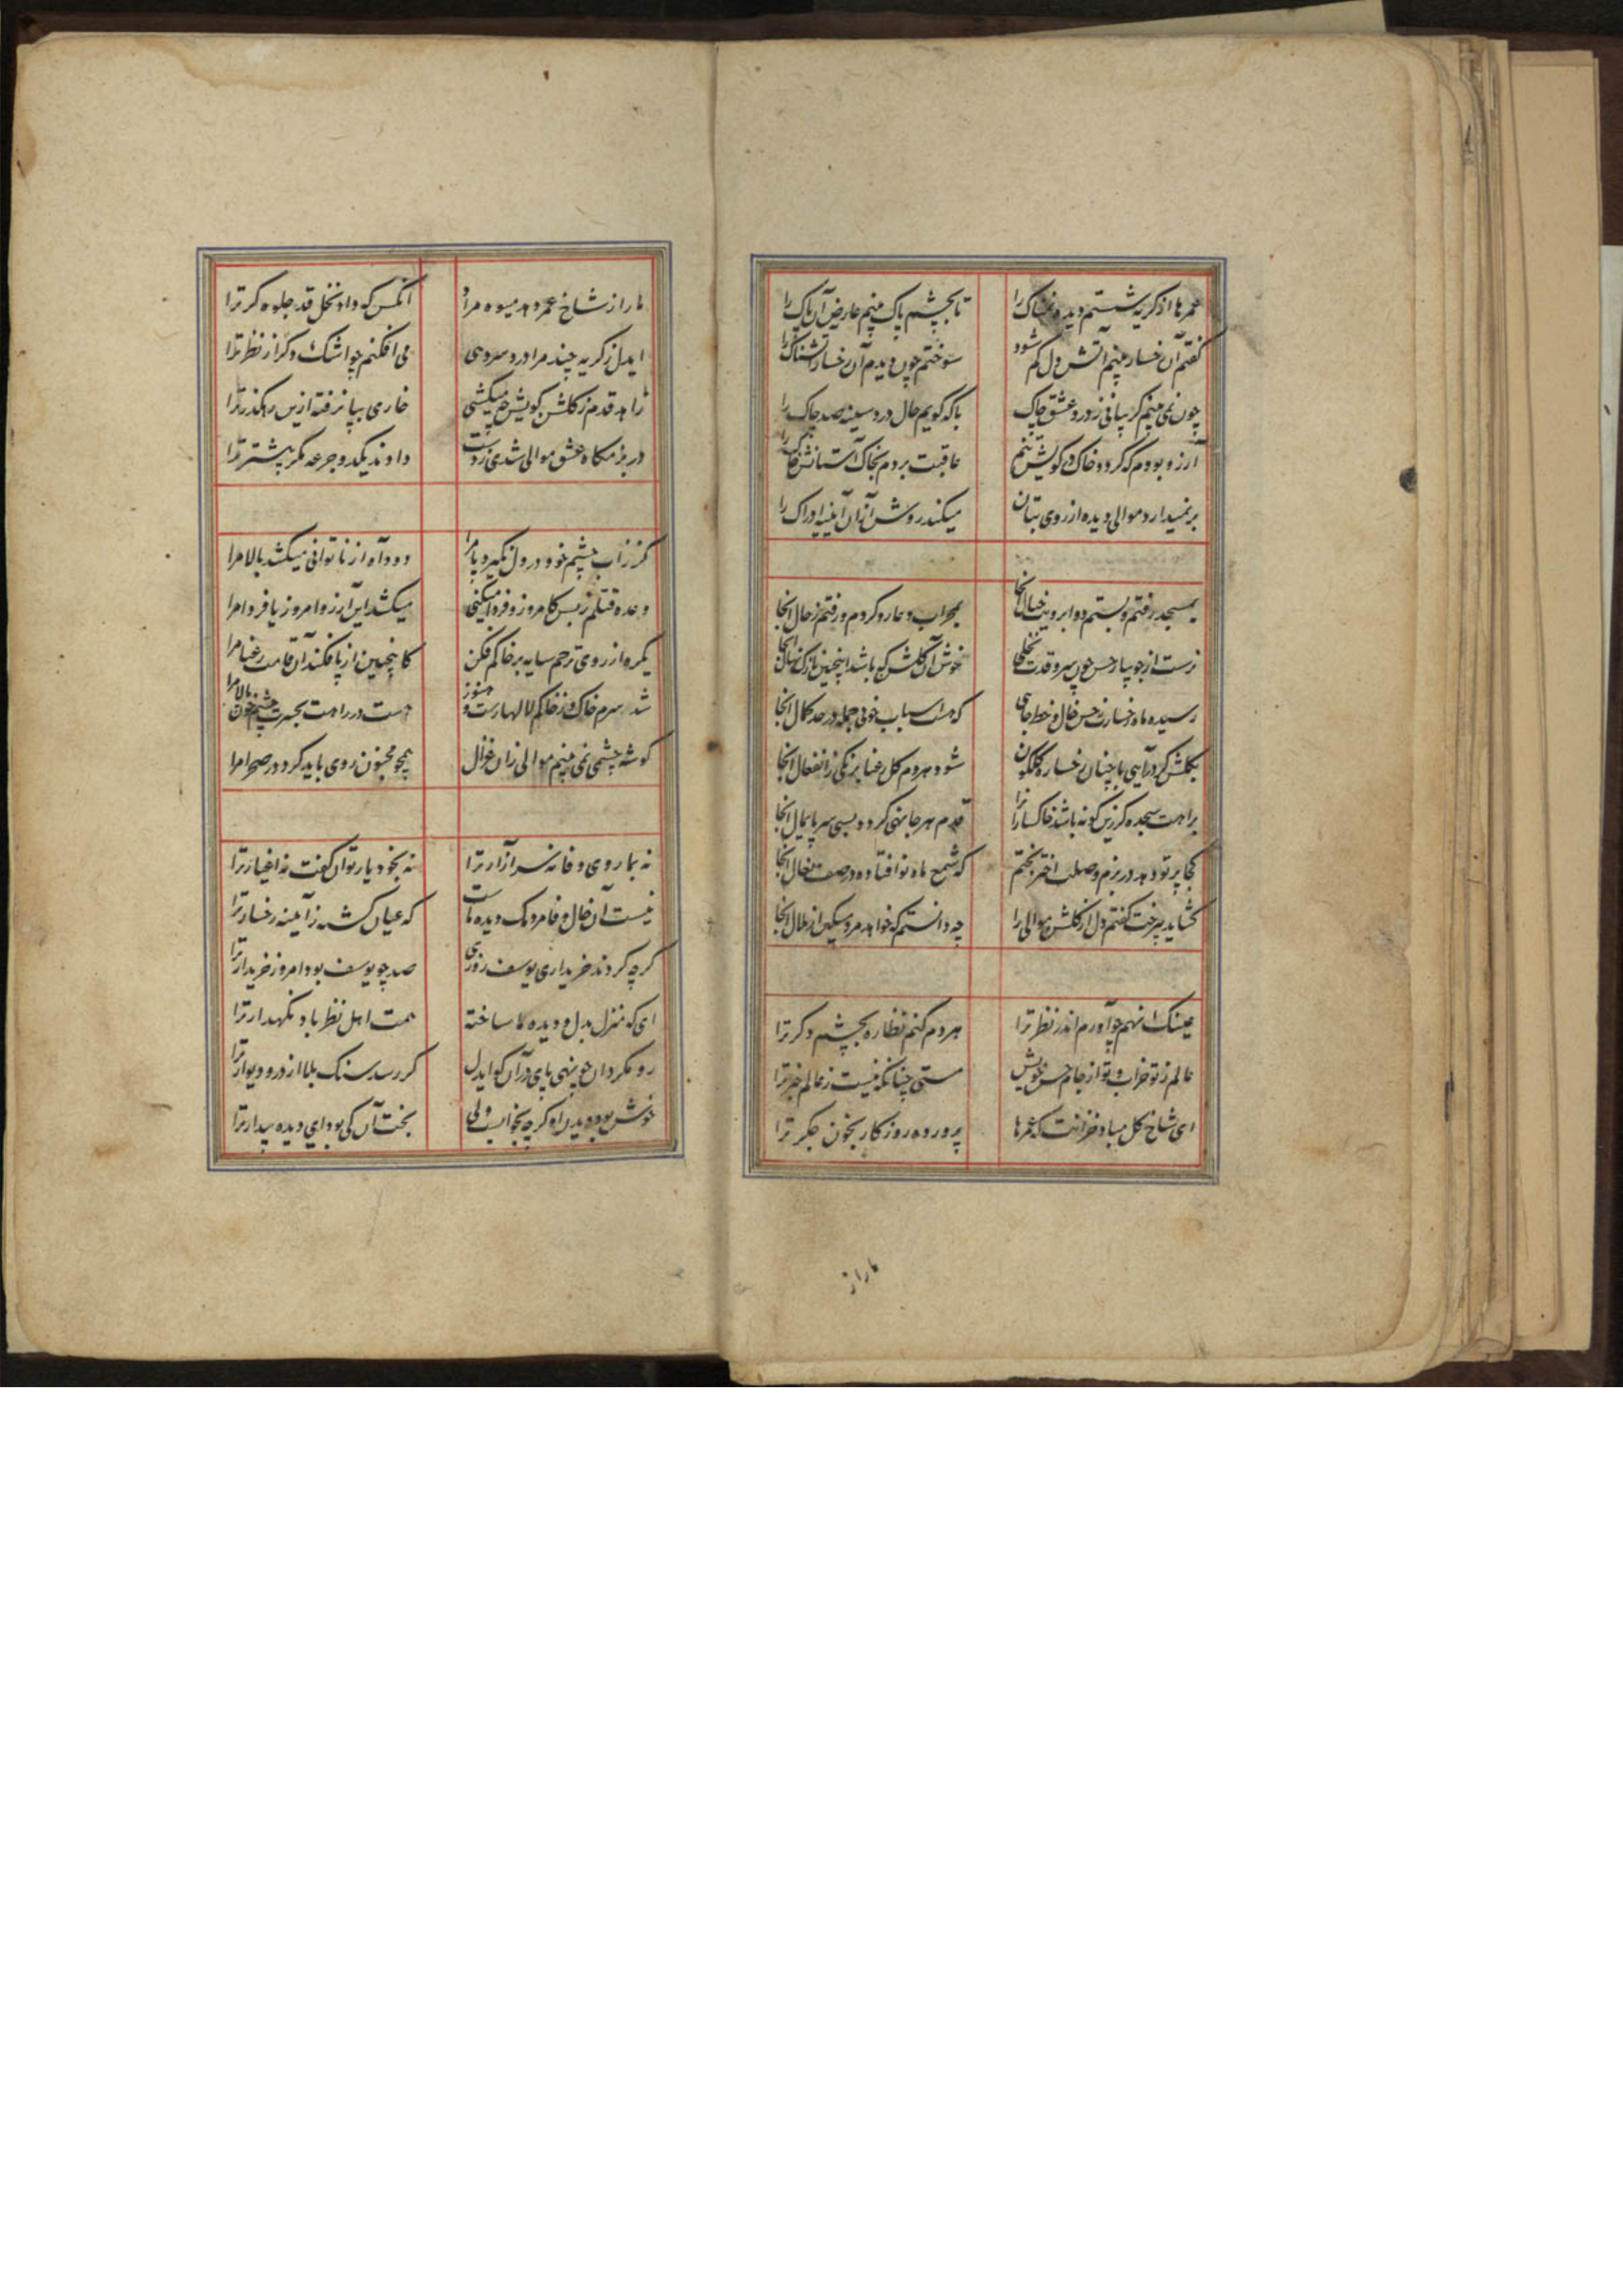 عمرها از کریه شستم دیده نمناک را تا بچشم پاک بینم عارض آن پاک را
کفتم آن رخسار بینم آتش دل کم شود سوختم چون دیدم آن رخسار آتشناک را
چون نمی بینم کریبانی ز درد عشق چاک با که کویم حال درد سینه صد چاک را
آرزو بودم که کردد خاک در کویش تنم عاقبت بردم بخاک آستانش خاک را
برنمیدارد موالی دیده از روی بتان میکند روشن ازان آیینه ادراک را
بمسجد رفتم و بستم دو ابرویت خیال آنجا بمحراب دعا رو کردم و رفتم ز حال آنجا
نرست از جویبار حسن چون سرو قدت نخلی خوش آن کلشن که باشد اینچنین نازک نهال آنجا
رسیده ماه رخسارت بحسن خال و خط جایی که هست اسباب خوبی جمله در حد کمال آنجا
بکلشن کر درآیی با چنان رخساره کلکون شود هر دم کل رعنا برنکی ز انفعال آنجا
براهت سجده کر زین کونه باشد خاکسارانرا قدم هر جا نهی کردد بسی سر پایمال آنجا
کجا پرتو دهد در بزم وصلت اختر بختم که شمع ماه نو افتاده در صف نعال آنجا
کشاید بی رخت کفتم دل از کلشن موالی را چه دانستم که خواهد مرد مسکین از ملال آنجا
عینک نهم چو آورم اندر نظر ترا هر دم کنم نظاره بچشم دکر ترا
عالم ز تو خراب و تو از جام حسن خویش مستی چنانکه نیست ز عالم خبر ترا
ای شاخ کل مباد خزانت که عمرها پرورده روزکار بخون جکر ترا
ما را ز
ما را ز شاخ عمر دهد میوه مراد آنکس که داد نخل قد جلوه کر ترا
ایدل ز کریه چند مرا درد سر دهی می افکنم چو اشک دکر از نظر ترا
زاهد قدم ز کلشن کویش چه میکشی خاری بپا نرفته ازین رهکذر ترا
در بزمکاه عشق موالی شدی ز دست دادند یکدو جرعه مکر پیشتر ترا
کر ز آب چشم خود در ول نکیرد پا مرا دود آه از ناتوانی میکشد بالا مرا
وعده قتلم ز بس کامروز و فردا میکنی میکشد این آرزو امروز یا فردا مرا
یکره از روی ترحم سایه بر خاکم فکن کاینچنین از پا فکند آن قامت رعنا مرا
شد سرم خاک و ز خاکم لالها رست و هنوز هست در راهت بحسرت چشم خون پالا مرا
کوشه چشمی نمی بینم موالی زان غزال همچو مجنون روی باید کرد در صحرا مرا
نه بما روی وفا نه سر آزار ترا نه بخود یار توان کفت نه اغیار ترا
نیست آن خال و فا مردمک دیده ماست که عیان کشته ز آیینه رخسار ترا
کرچه کردند خریداری یوسف روزی صد چو یوسف بود امروز خریدار ترا
ای که منزل بدل و دیده ما ساخته همت اهل نظر باد نکهدار ترا
رو مکردان چو نهی پای در آن کو ایدل کر رسد سنک بلا از در و دیوار ترا
خوش بود دیدن او کرچه بخوابست ولی بخت آن کی بود ای دیده بیدار ترا